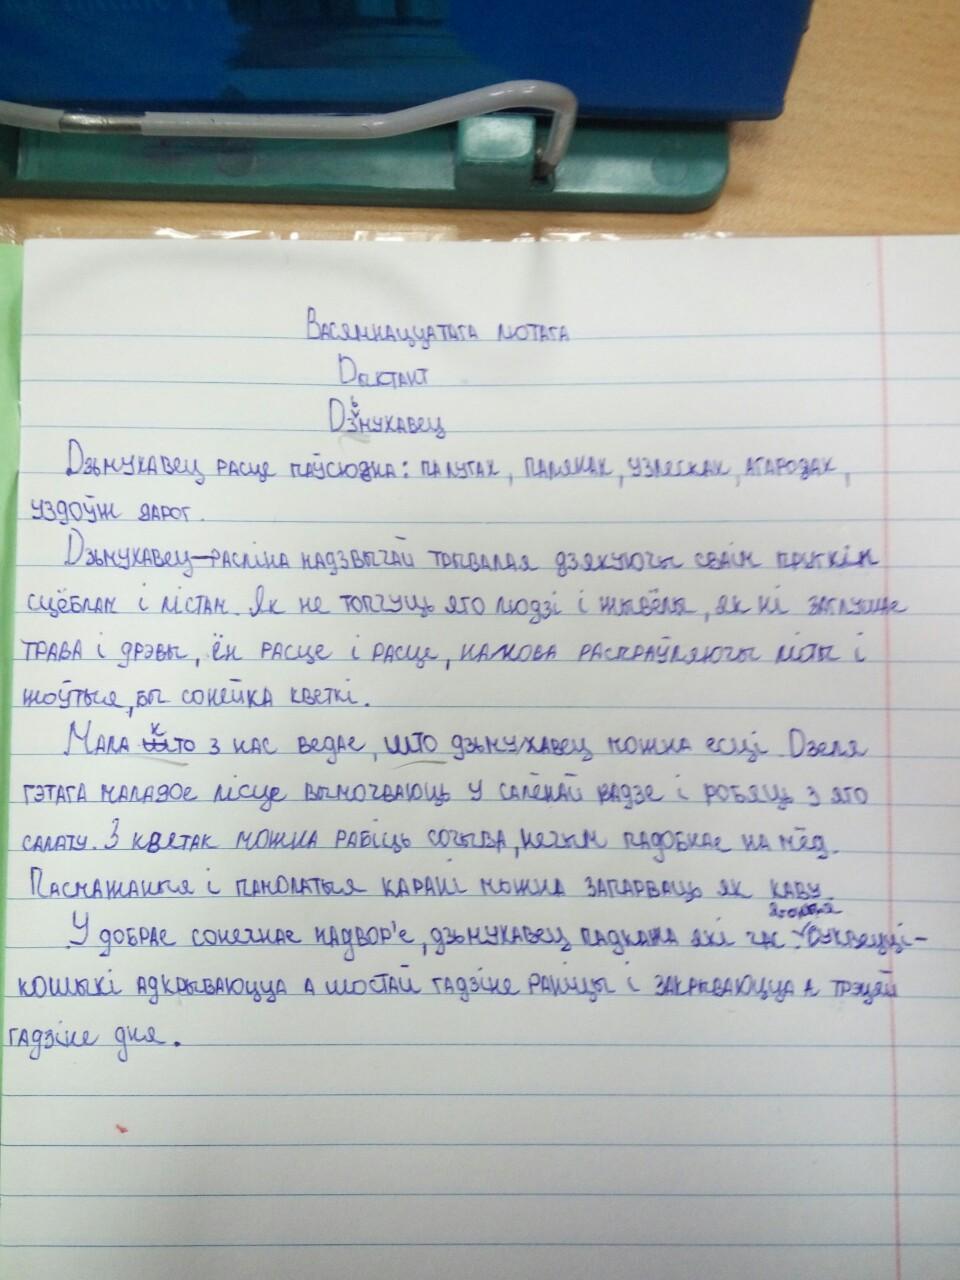 Васямнаццатага лютага
Дыктант
Дзьмухавец
Дзьмухавец расце паўсюдна: палугах, паляках, узлесках, агародах,
уздоўж дарог.
Дзьмухавец—расліна надзвычай трывалая дзякуючы сваім пругкім
сцёблам і лістам. Як не топчуць яго людзі і жывёлы, як ні заглушае
трава і дрэвы, ён расце і расце, нанова распраўляючы лісты і
жоўтыя, бы сонейка кветкі.
Мала хто з нас ведае, што дзьмухавец можна есці. Дзеля
гэтага маладое лісце вымочваюць у салёнай вадзе і робяць з яго
салату. З кветак можна рабіць сочыва, нечым падобнае на мёд.
Пасмажаныя і памолатыя карані можна запарваць як каву.
У добрае сонечнае надвор'е, дзьмухавец падкажа які час яго суквецці-
кошыкі адкрываюцца а шостай гадзіне раніцы і закрываюцца а трэцяй
гадзіне дня.